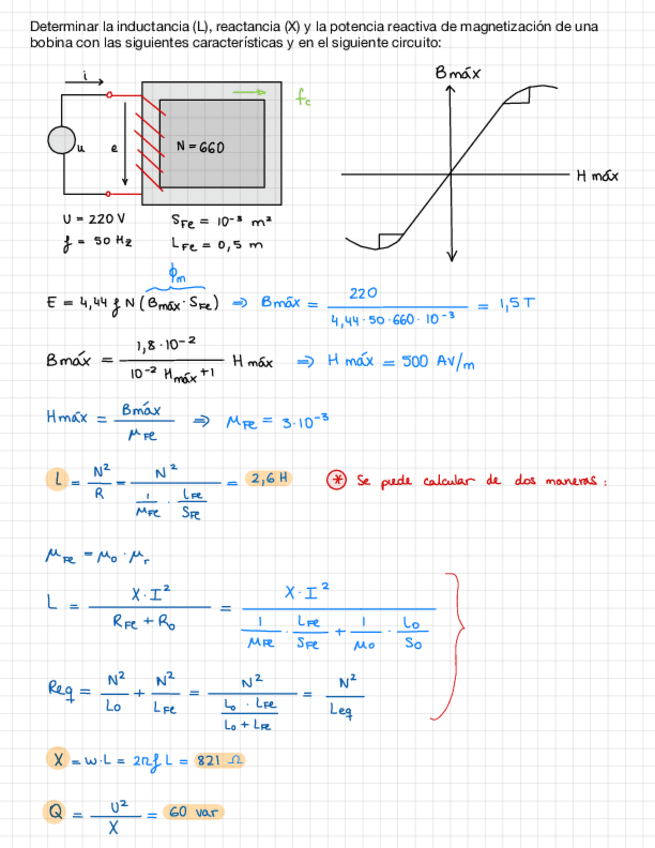 Determinar la inductancia (L), reactancia (X) y la potencia reactiva de magnetización de una
bobina con las siguientes características y en el siguiente circuito:
i
u
e
N = 660
fc
Bmáx
H máx
U = 220 V
f = 50 Hz
SFe = 10⁻³ m²
LFe = 0,5 m
ϕm
E = 4,44 f N (Bmáx · SFe) => Bmáx = 220 / 4,44 · 50 · 660 · 10⁻³ = 1,5 T
Bmáx = 1,8 · 10⁻² / 10⁻² Hmáx + 1 H máx => H máx = 500 AV/m
Hmáx = Bmáx / μFe => μFe = 3 · 10⁻³
L = N² / R = N² / 1/μFe · LFe/SFe = 2,6 H
* Se puede calcular de dos maneras:
μFe = μo · μr
L = X · I² / RFe + Ro = X · I² / 1/μFe · LFe/SFe + 1/μo · Lo/So
Req = N²/Lo + N²/LFe = N² / Lo · LFe / Lo + LFe = N² / Leq
X = w · L = 2πf L = 821 Ω
Q = U² / X = 60 var